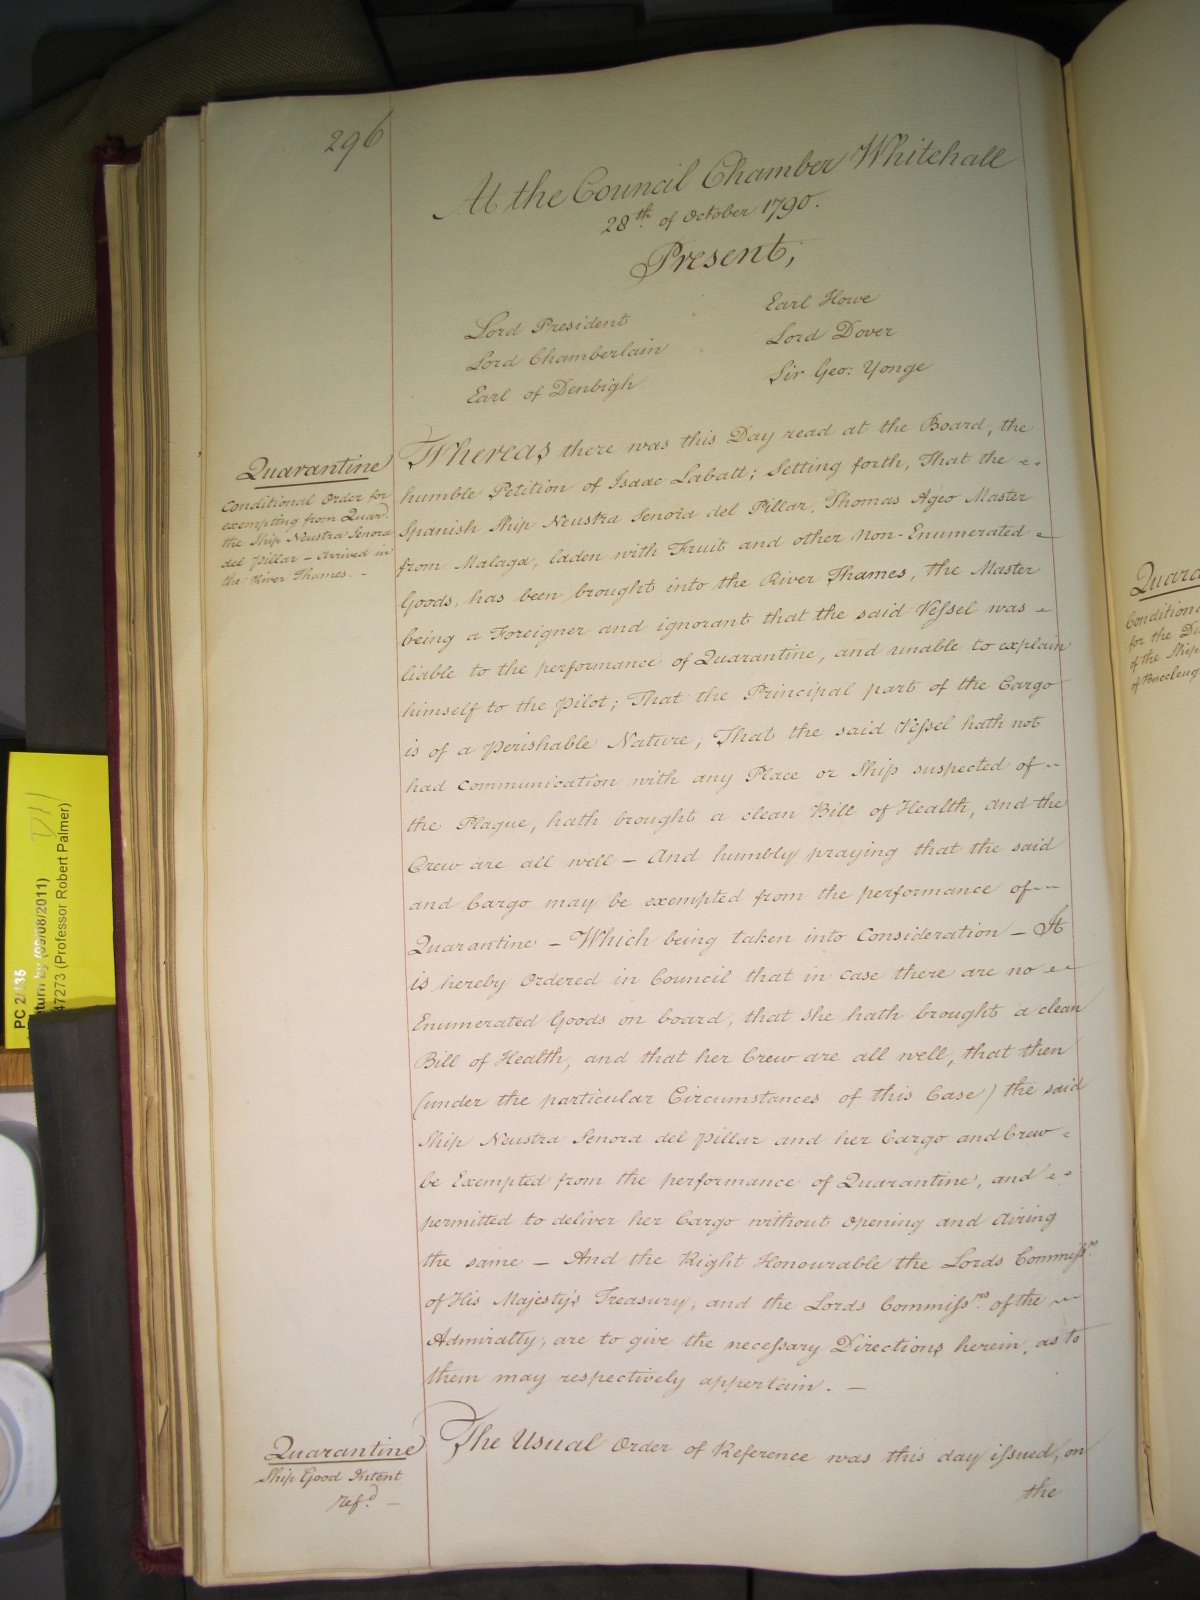 296
At the Council Chamber Whitehall
28th. of October 1790.
Present;
Lord President
Lord Chamberlain
Earl of Denbigh
Earl Howe
Lord Dover
Sir Geo: Yonge
Quarantine
Conditional Order for
exempting from Quar.
the Ship Neustra Senora
del Pillar – arrived in
the River Thames. –
Whereas there was this Day read at the Board, the
humble Petition of Isaac Labatt; Setting forth, That the
Spanish Ship Neustra Senora del Pillar, Thomas Ageo Master
from Malaga, laden with Fruit and other Non-Enumerated
Goods, has been brought into the River Thames, the Master
being a Foreigner and ignorant that the said Vessel was
liable to the performance of Quarantine, and unable to explain
himself to the Pilot; That the Principal part of the Cargo
is of a perishable Nature; That the said Vessel hath not
had Communication with any Place or Ship suspected of
the Plague, hath brought a clean Bill of Health, and the
Crew are all well – And humbly praying that the said
and Cargo may be exempted from the performance of
Quarantine – Which being taken into Consideration – It
is hereby Ordered in Council that in case there are no
Enumerated Goods on board, that She hath brought a clean
Bill of Health, and that her Crew are all well, that then
(under the particular Circumstances of this Case) the said
Ship Neustra Senora del Pillar and her Cargo and Crew
be Exempted from the performance of Quarantine, and
permitted to deliver her Cargo without opening and Airing
the same – And the Right Honourable the Lords Commissrs.
of His Majesty's Treasury, and the Lords Commissrs. of the
Admiralty, are to give the necessary Directions herein, as to
them may respectively appertain. –
Quarantine
Ship Good Intent
refd. –
The Usual Order of Reference was this day issued, on
the
Quara
Conditiona
for the De
of the Ship
of Buccleug
PC 2/135
eturn by (09/08/2011)
47273 (Professor Robert Palmer)